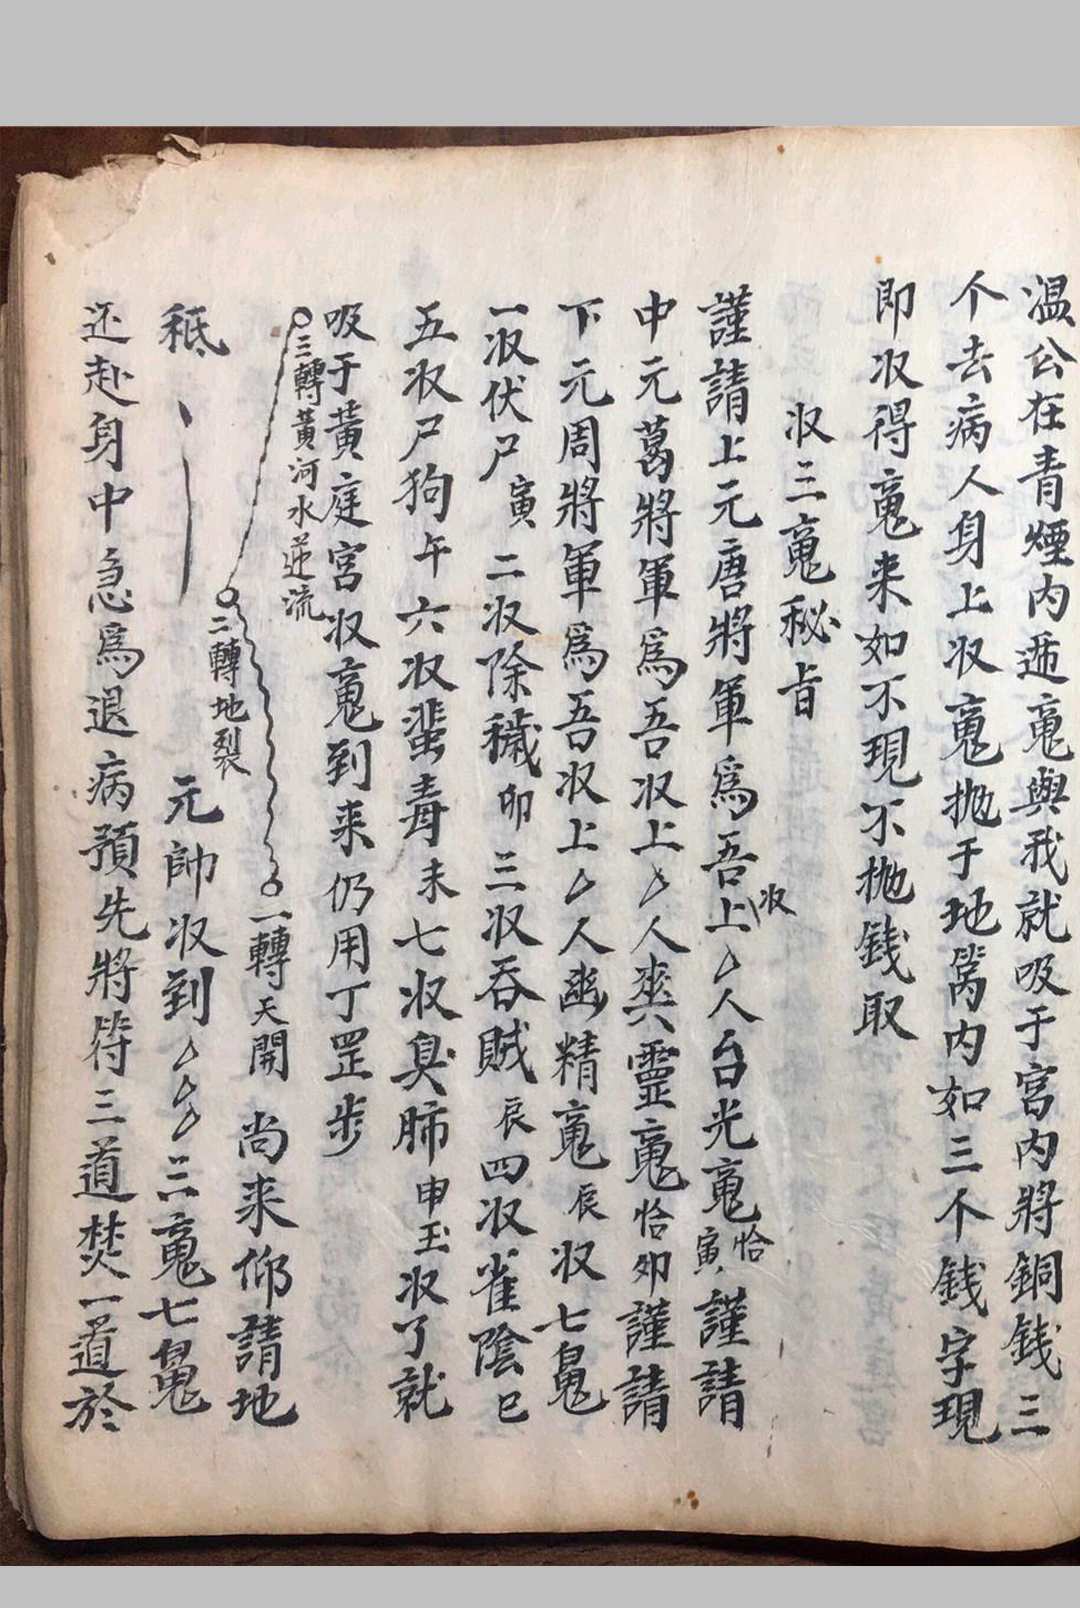 温公在青煙内逓䰟與我就吸于宮内將銅銭三
个去病人身上収䰟抛于地窩内如三个銭字現
即収得䰟来如不現不抛銭取
収三䰟秘旨
謹請上元唐將軍爲吾収上人台光䰟恰寅謹請
中元葛將軍爲吾収上人爽靈䰟恰卯謹請
下元周將軍爲吾収上人幽精䰟辰収七魄
一収伏尸寅二収除穢卯三収吞賊辰四収雀陰巳
五収尸狗午六収蜚毒未七収臭肺申玉収了就
吸于黄庭宮収䰟到来仍用丁罡步
三轉黄河水逆流
二轉地裂
一轉天開
尚来仰請地
秪
元帥収到三䰟七魄
还赴身中急爲退病預先將符三道焚一道於